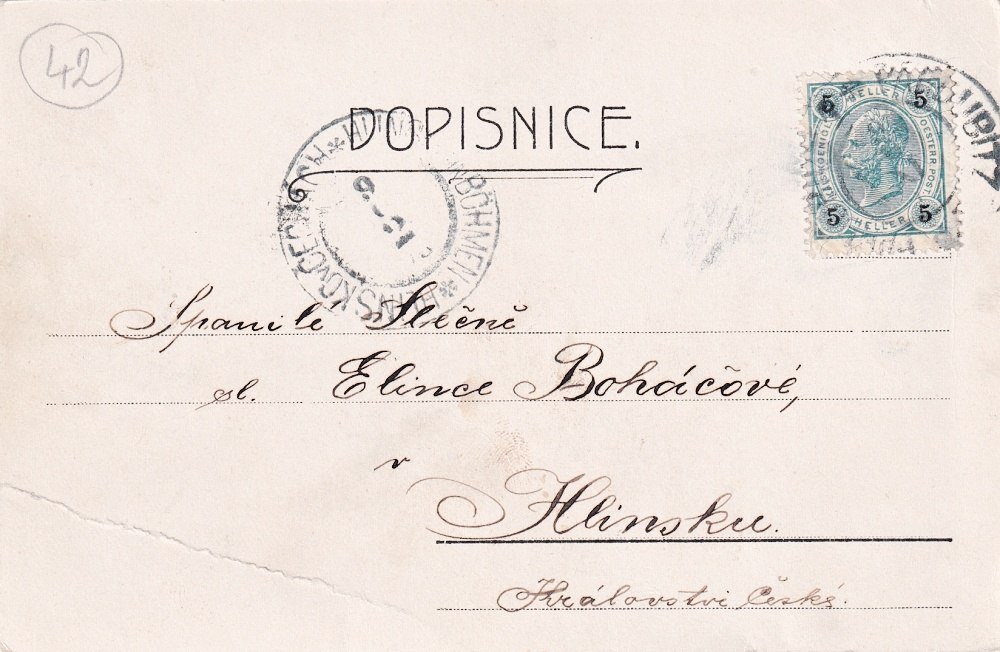 42
DOPISNICE.
5 HELLER 5
KAIS. KOENIGL. OESTERR. POST.
5 HELLER 5
HLINSKO V ČECHÁCH
BÖHMEN
Spanilé Slečně
sl. Elince Boháčově,
v
Hlinsku.
Království České.